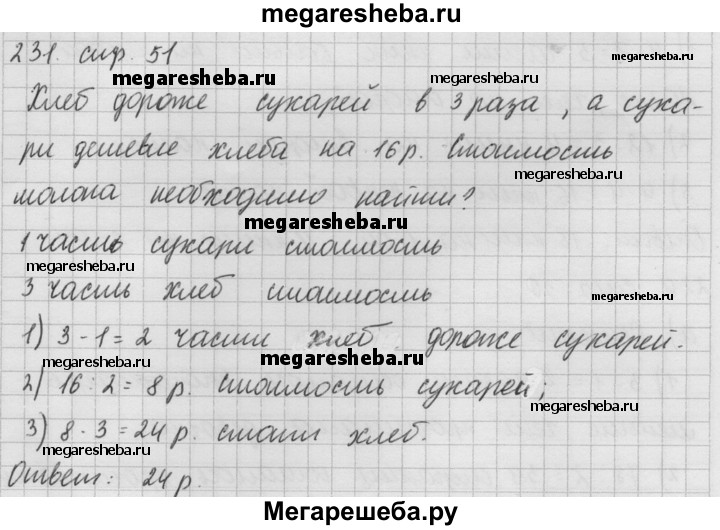 megaresheba.ru
231. стр. 51
megaresheba.ru
megaresheba.ru
megaresheba.ru
Хлеб дороже сухарей в 3 раза, а суха-
ри дешевле хлеба на 16 р. Стоимость
megaresheba.ru
молока необходимо найти?
megaresheba.ru
1 часть сухари стоимость
megaresheba.ru
3 часть хлеб стоимость
megaresheba.ru
1) 3 - 1 = 2 части хлеб дороже сухарей.
megaresheba.ru
2) 16 : 2 = 8 р. Стоимость сухарей;
megaresheba.ru
3) 8 · 3 = 24 р. стоит хлеб.
megaresheba.ru
Ответ: 24 р.
Мегарешеба.ру